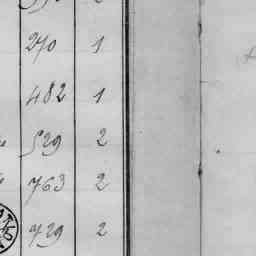 270 1
482 1
529 2
763 2
729 2